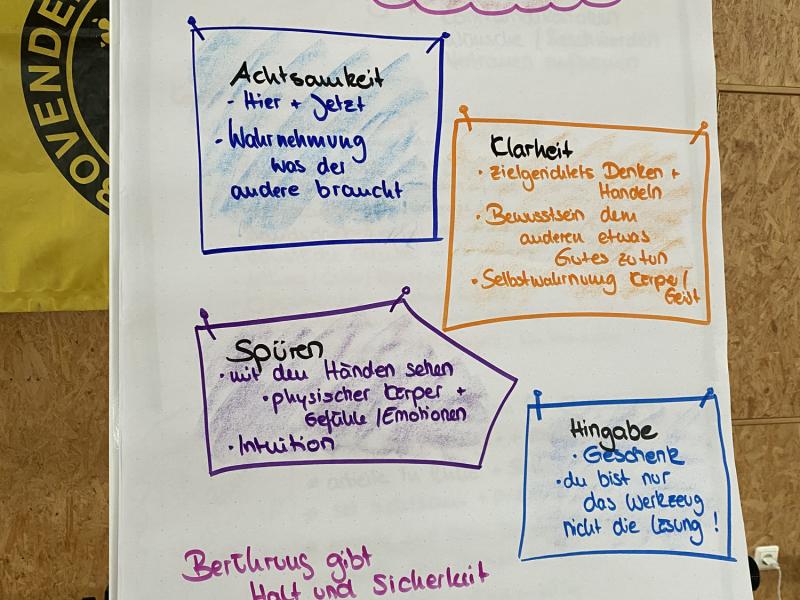 BOVENDE
Achtsamkeit
- Hier + Jetzt
- Wahrnehmung
was der
andere braucht
Klarheit
• zielgerichtets Denken +
Handeln
• Bewusstsein dem
anderen etwas
Gutes zu tun
• Selbstwahrnung Körper/
Geist
Spüren
• mit den Händen sehen
• physischer Körper +
Gefühle / Emotionen
• Intuition
Hingabe
• Geschenk
• du bist nur
das Werkzeug
nicht die Lösung !
Berührung gibt
Halt und Sicherheit